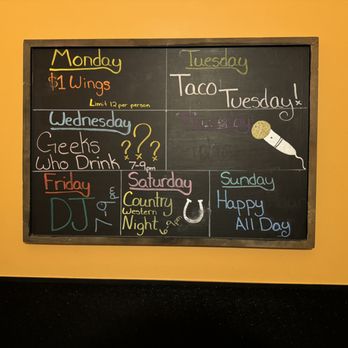 Monday
$1 Wings
Limit 12 per person
Tuesday
Taco
Tuesday!
Wednesday
Geeks
Who Drink
???
7-9pm
Thursday
Friday
DJ
Saturday
Country
Western
Night
Sunday
Happy
All Day